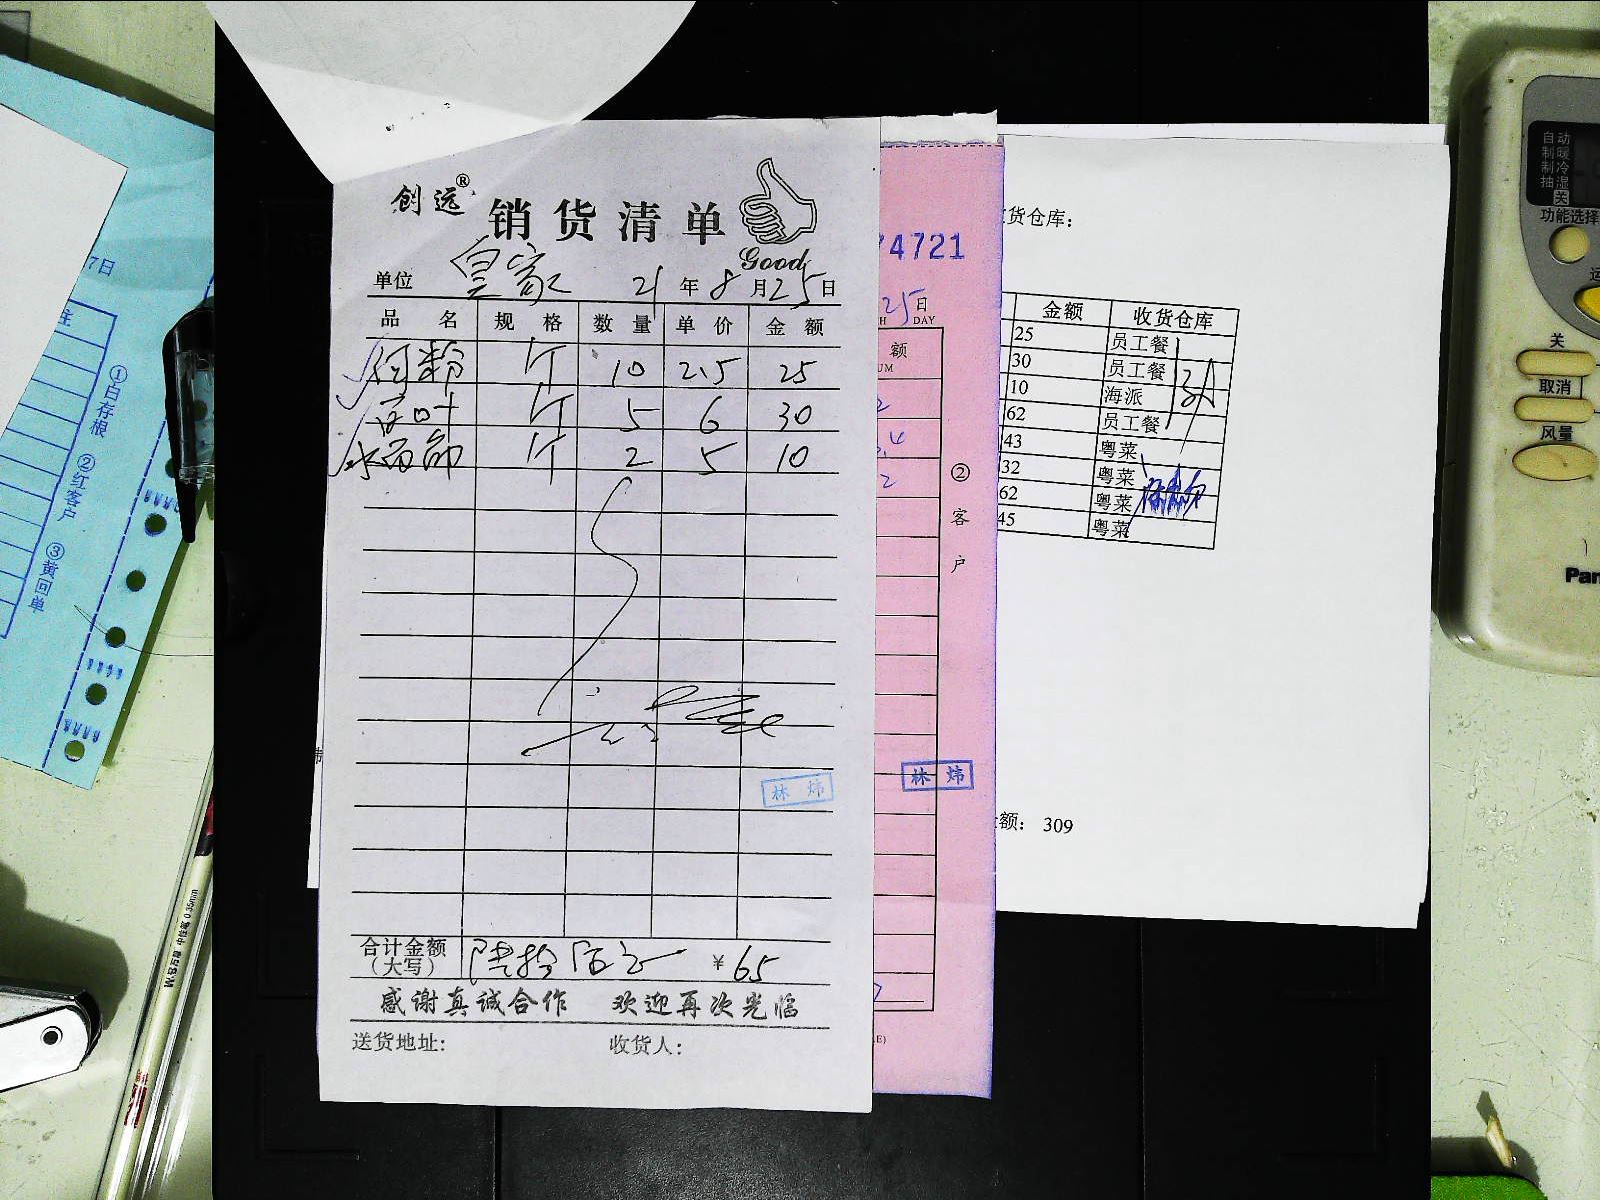 创远®
销货清单
Good
单位 皇家 21年8月25日
品名 规格 数量 单价 金额
河粉 斤 10 2.5 25
斤 5 6 30
斤 2 5 10
林炜
合计金额（大写） 陆拾伍元 ¥65
感谢真诚合作 欢迎再次光临
送货地址： 收货人：
74721
25日
DAY
额
UM
② 客户
林炜
货仓库：
金额 收货仓库
25 员工餐
30 员工餐
10 海派
62 员工餐
43 粤菜
32 粤菜
62 粤菜
45 粤菜
额： 309
7日
①白存根 ②红客户 ③黄回单
中性笔 0.35mm
自动
制暖
制冷
抽湿
关
功能选择
运
关
取消
风量
Pan